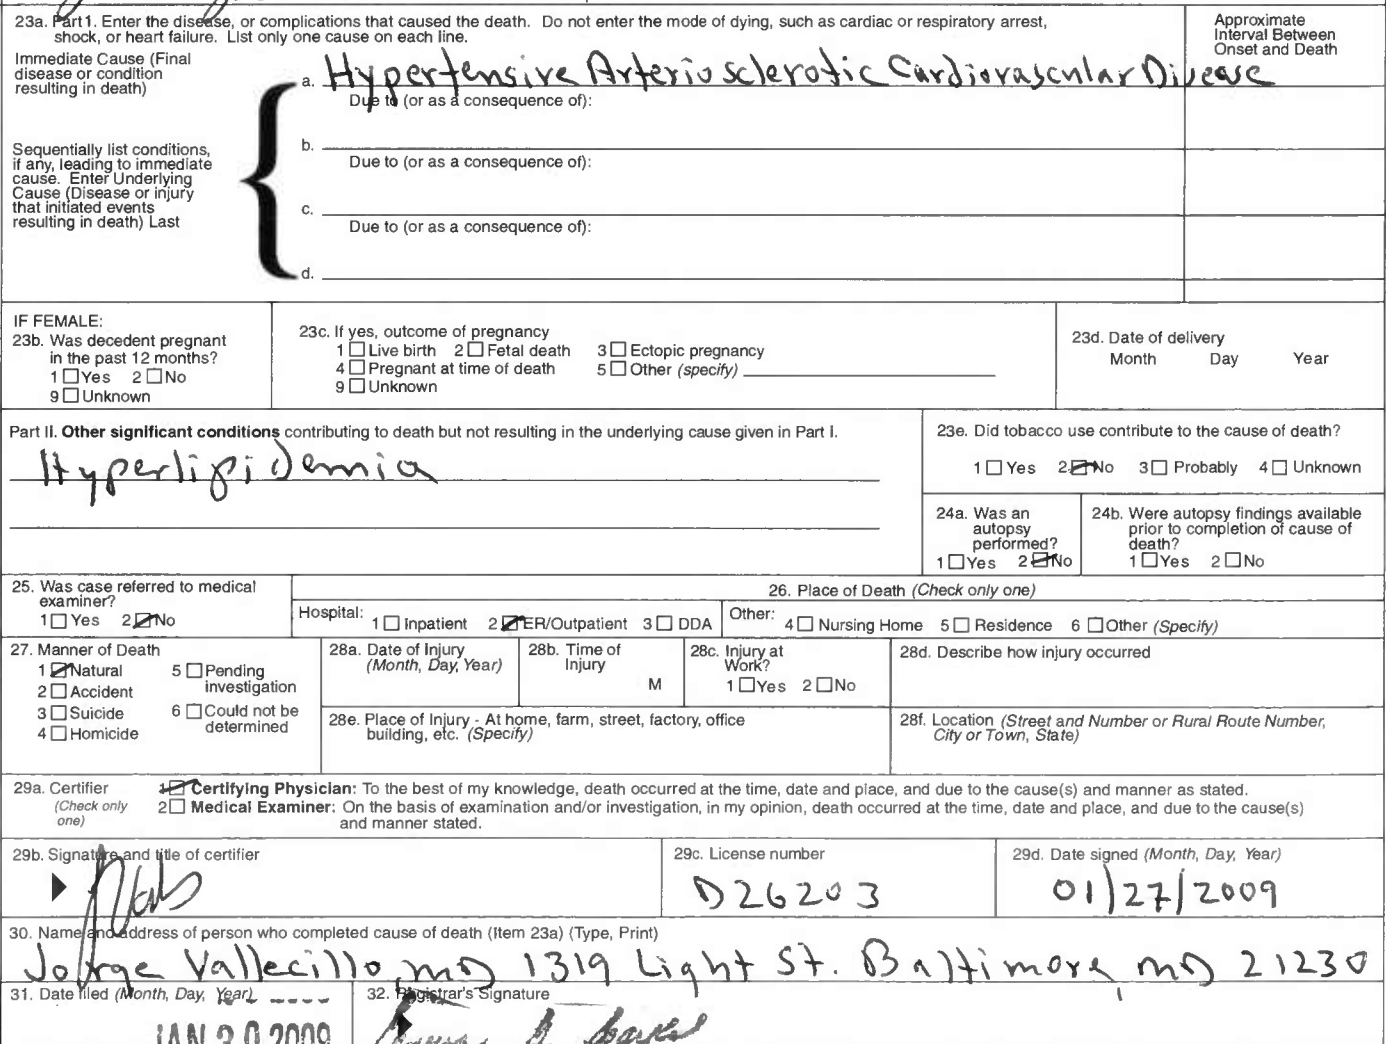 23a. Part1. Enter the disease, or complications that caused the death. Do not enter the mode of dying, such as cardiac or respiratory arrest,
shock, or heart failure. List only one cause on each line.
Approximate
Interval Between
Onset and Death
Immediate Cause (Final
disease or condition
resulting in death)
a. Hypertensive Arteriosclerotic Cardiovascular Disease
Due to (or as a consequence of):
Sequentially list conditions,
if any, leading to immediate
cause. Enter Underlying
Cause (Disease or injury
that initiated events
resulting in death) Last
b.
Due to (or as a consequence of):
c.
Due to (or as a consequence of):
d.
IF FEMALE:
23b. Was decedent pregnant
in the past 12 months?
1 Yes 2 No
9 Unknown
23c. If yes, outcome of pregnancy
1 Live birth 2 Fetal death 3 Ectopic pregnancy
4 Pregnant at time of death 5 Other (specify)
9 Unknown
23d. Date of delivery
Month Day Year
Part II. Other significant conditions contributing to death but not resulting in the underlying cause given in Part I.
Hyperlipidemia
23e. Did tobacco use contribute to the cause of death?
1 Yes 2 No 3 Probably 4 Unknown
24a. Was an
autopsy
performed?
1 Yes 2 No
24b. Were autopsy findings available
prior to completion of cause of
death?
1 Yes 2 No
25. Was case referred to medical
examiner?
1 Yes 2 No
26. Place of Death (Check only one)
Hospital: 1 Inpatient 2 ER/Outpatient 3 DDA
Other: 4 Nursing Home 5 Residence 6 Other (Specify)
27. Manner of Death
1 Natural 5 Pending
investigation
2 Accident
3 Suicide 6 Could not be
determined
4 Homicide
28a. Date of Injury
(Month, Day, Year)
28b. Time of
Injury
M
28c. Injury at
Work?
1 Yes 2 No
28d. Describe how injury occurred
28e. Place of Injury - At home, farm, street, factory, office
building, etc. (Specify)
28f. Location (Street and Number or Rural Route Number,
City or Town, State)
29a. Certifier
(Check only
one)
1 Certifying Physician: To the best of my knowledge, death occurred at the time, date and place, and due to the cause(s) and manner as stated.
2 Medical Examiner: On the basis of examination and/or investigation, in my opinion, death occurred at the time, date and place, and due to the cause(s)
and manner stated.
29b. Signature and title of certifier
29c. License number
D26203
29d. Date signed (Month, Day, Year)
01/27/2009
30. Name and address of person who completed cause of death (Item 23a) (Type, Print)
Jorge Vallecillo, MD 1319 Light St. Baltimore, MD 21230
31. Date filed (Month, Day, Year)
JAN 30 2009
32. Registrar's Signature